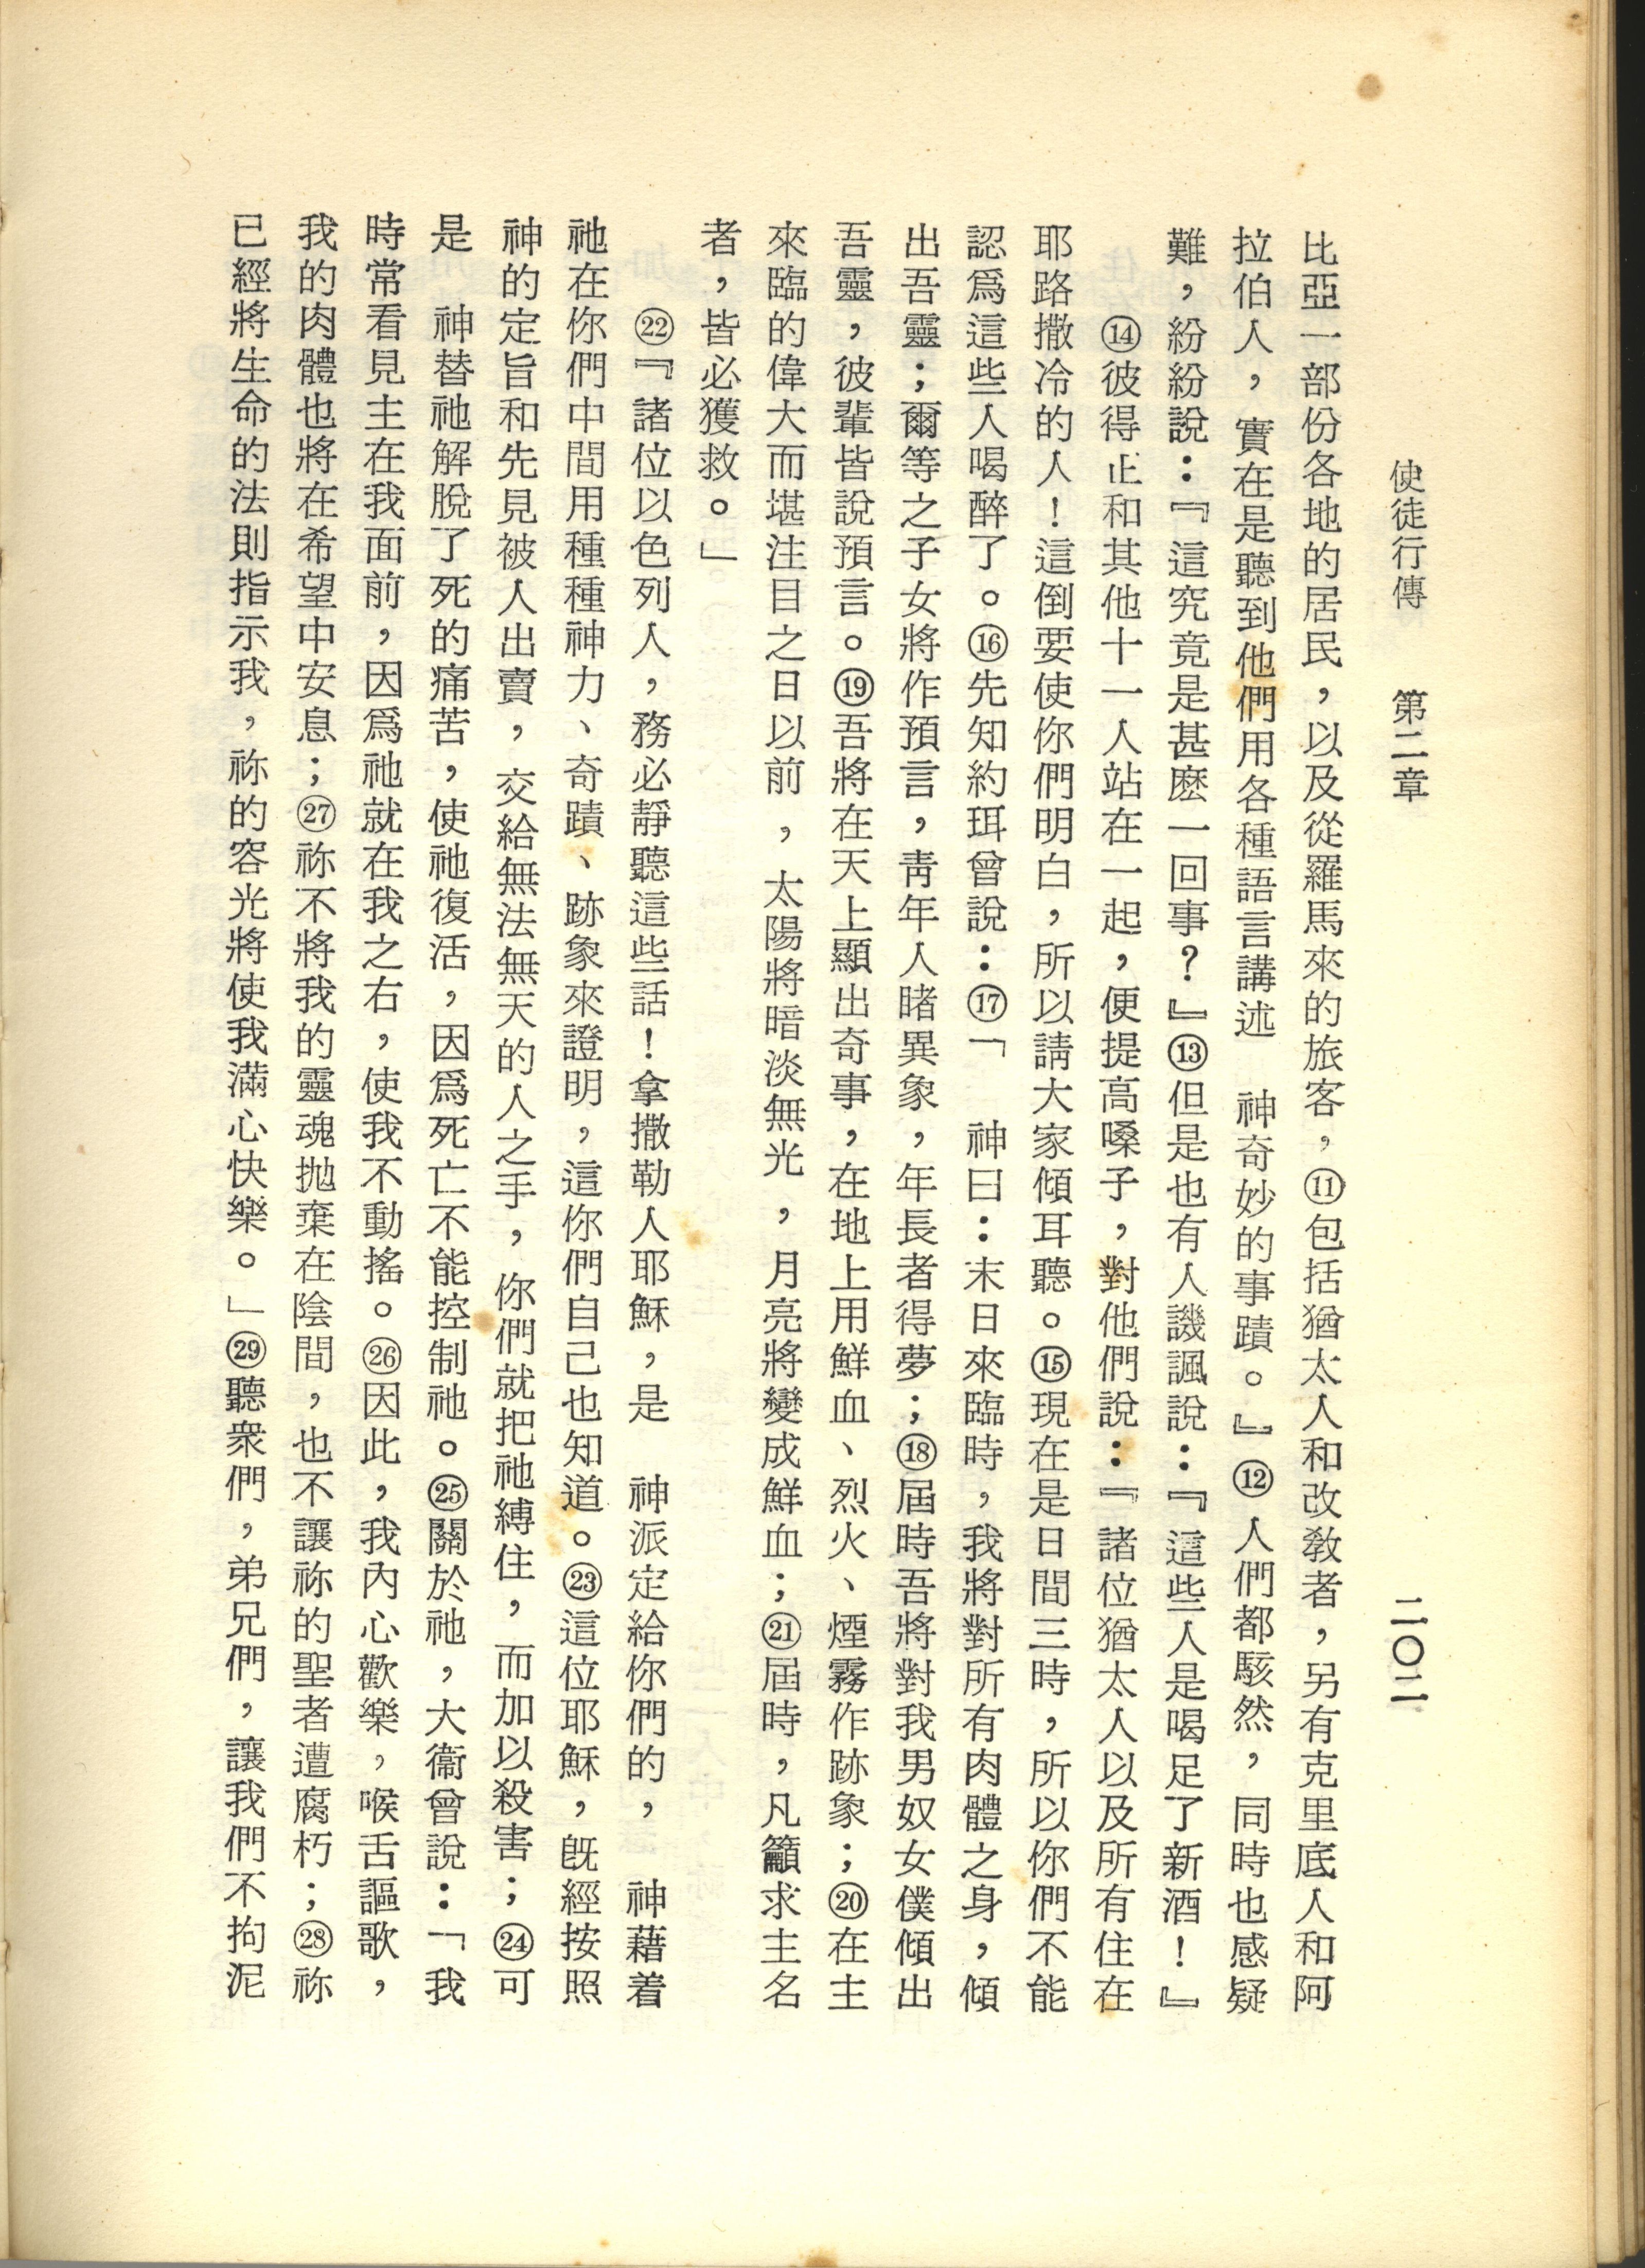 使徒行傳　第二章　二〇二
比亞一部份各地的居民，以及從羅馬來的旅客，⑪包括猶太人和改教者，另有克里底人和阿
拉伯人，實在是聽到他們用各種語言講述　神奇妙的事蹟。』⑫人們都駭然，同時也感疑
難，紛紛說：『這究竟是甚麽一回事？』⑬但是也有人譏諷說：『這些人是喝足了新酒！』
⑭彼得正和其他十一人站在一起，便提高嗓子，對他們說：『諸位猶太人以及所有住在
耶路撒冷的人！這倒要使你們明白，所以請大家傾耳聽。⑮現在是日間三時，所以你們不能
認爲這些人喝醉了。⑯先知約珥曾說：⑰「　神曰：末日來臨時，我將對所有肉體之身，傾
出吾靈；爾等之子女將作預言，靑年人睹異象，年長者得夢；⑱屆時吾將對我男奴女僕傾出
吾靈，彼輩皆說預言。⑲吾將在天上顯出奇事，在地上用鮮血、烈火、煙霧作跡象；⑳在主
來臨的偉大而堪注目之日以前，太陽將暗淡無光，月亮將變成鮮血；㉑屆時，凡籲求主名
者，皆必獲救。」
㉒『諸位以色列人，務必靜聽這些話！拿撒勒人耶穌，是　神派定給你們的，　神藉着
祂在你們中間用種種神力、奇蹟、跡象來證明，這你們自己也知道。㉓這位耶穌，旣經按照
神的定旨和先見被人出賣，交給無法無天的人之手，你們就把祂縛住，而加以殺害；㉔可
是　神替祂解脫了死的痛苦，使祂復活，因爲死亡不能控制祂。㉕關於祂，大衞曾說：「我
時常看見主在我面前，因爲祂就在我之右，使我不動搖。㉖因此，我內心歡樂，喉舌謳歌，
我的肉體也將在希望中安息；㉗祢不將我的靈魂抛棄在陰間，也不讓祢的聖者遭腐朽；㉘祢
已經將生命的法則指示我，祢的容光將使我滿心快樂。」㉙聽衆們，弟兄們，讓我們不拘泥